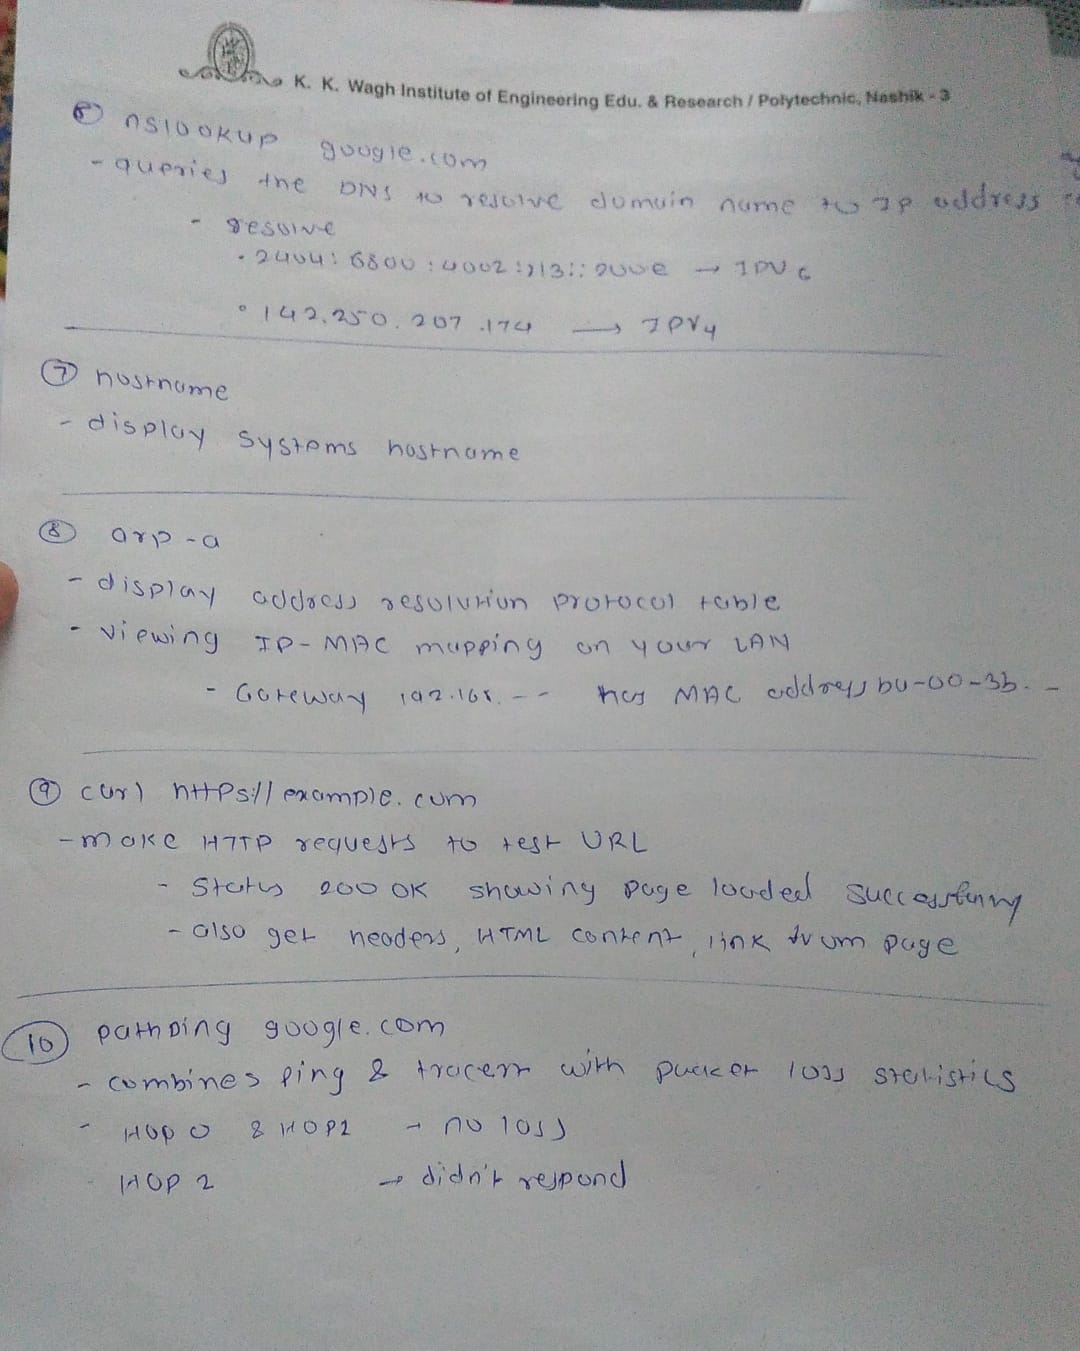 K. K. Wagh Institute of Engineering Edu. & Research / Polytechnic, Nashik - 3
nslookup google.com
- queries the DNS to resolve domain name to IP address
- resolve
• 2404:6800:4002:213::200e → IPV6
• 142.250.207.174 → IPV4
7 hostname
- display systems hostname
8 arp -a
- display address resolution protocol table
- viewing IP-MAC mapping on your LAN
- Gateway 192.168. -- has MAC address b0-00-3b. -
9 curl https://example.com
- make HTTP requests to test URL
- Status 200 OK showing page loaded successfully
- also get headers, HTML content, link from page
10 pathping google.com
- combines ping & tracert with packet loss statistics
- Hop 0 & HOP1 → no loss
HOP 2 → didn't respond